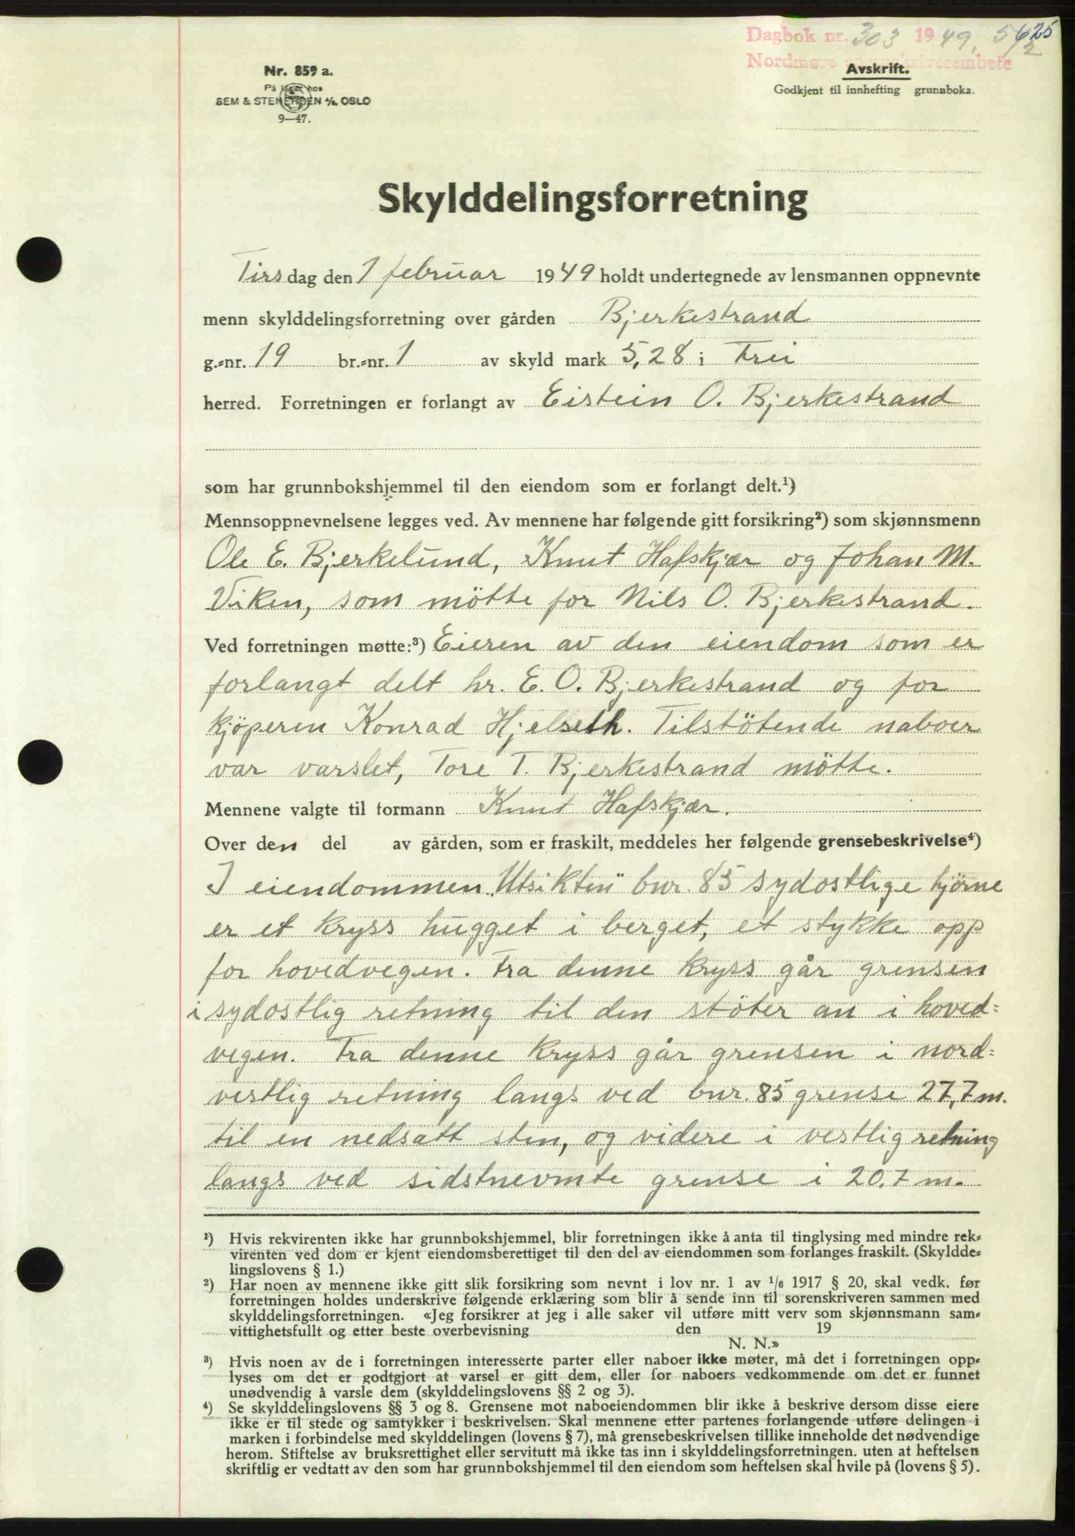 Dagbok nr. 303 1949, 5/2 625
Nordmøre sorenskriverembete
Nr. 859 a.
På lager hos
SEM & STENERSEN A/S, OSLO
9—47.
Avskrift.
Godkjent til innhefting grunnboka.
Skylddelingsforretning
Tirsdag den 1 februar 1949 holdt undertegnede av lensmannen oppnevnte
menn skylddelingsforretning over gården Bjerkestrand
g.-nr. 19 br.-nr. 1 av skyld mark 5,28 i Frei
herred. Forretningen er forlangt av Eistein O. Bjerkestrand
som har grunnbokshjemmel til den eiendom som er forlangt delt.¹)
Mennsoppnevnelsene legges ved. Av mennene har følgende gitt forsikring²) som skjønnsmenn
Ole E. Bjerkelund, Knut Hafskjær og Johan M.
Viken, som mötte for Nils O. Bjerkestrand.
Ved forretningen møtte:³) Eieren av den eiendom som er
forlangt delt hr. E. O. Bjerkestrand og for
kjöperen Konrad Hjelseth. Tilstötende naboer
var varslet, Tore T. Bjerkestrand mötte.
Mennene valgte til formann Knut Hafskjær.
Over den del av gården, som er fraskilt, meddeles her følgende grensebeskrivelse⁴)
I eiendommen „Utsikten" bnr. 85 sydostlige hjörne
er et kryss hugget i berget, et stykke opp
for hovedvegen. Fra denne kryss går grensen
i sydostlig retning til den stöter an i hoved=
vegen. Fra denne kryss går grensen i nord=
vestlig retning langs ved bnr. 85 grense 27,7 m.
til en nedsatt sten, og videre i vestlig retning
langs ved sidstnevnte grense i 20.7 m.
¹) Hvis rekvirenten ikke har grunnbokshjemmel, blir forretningen ikke å anta til tinglysing med mindre rek-
virenten ved dom er kjent eiendomsberettiget til den del av eiendommen som forlanges fraskilt. (Skyldde-
lingslovens § 1.)
²) Har noen av mennene ikke gitt slik forsikring som nevnt i lov nr. 1 av 1/6 1917 § 20, skal vedk. før
forretningen holdes underskrive følgende erklæring som blir å sende inn til sorenskriveren sammen med
skylddelingsforretningen. «Jeg forsikrer at jeg i alle saker vil utføre mitt verv som skjønnsmann sam-
vittighetsfullt og etter beste overbevisning den 19
N. N.»
³) Hvis noen av de i forretningen interesserte parter eller naboer ikke møter, må det i forretningen opp-
lyses om det er godtgjort at varsel er gitt dem, eller for naboers vedkommende om det er funnet
unødvendig å varsle dem (skylddelingslovens §§ 2 og 3).
⁴) Se skylddelingslovens §§ 3 og 8. Grensene mot naboeiendommen blir ikke å beskrive dersom disse eiere
ikke er til stede og samtykker i beskrivelsen. Skal mennene etter partenes forlangende utføre delingen i
marken i forbindelse med skylddelingen (lovens § 7), må grensebeskrivelsen tillike inneholde det nødvendige
herom. Stiftelse av bruksrettighet eller servitutt må ikke tas inn i skylddelingsforretningen. uten at heftelsen
skriftlig er vedtatt av den som har grunnbokshjemmel til den eiendom som heftelsen skal hvile på (lovens § 5).